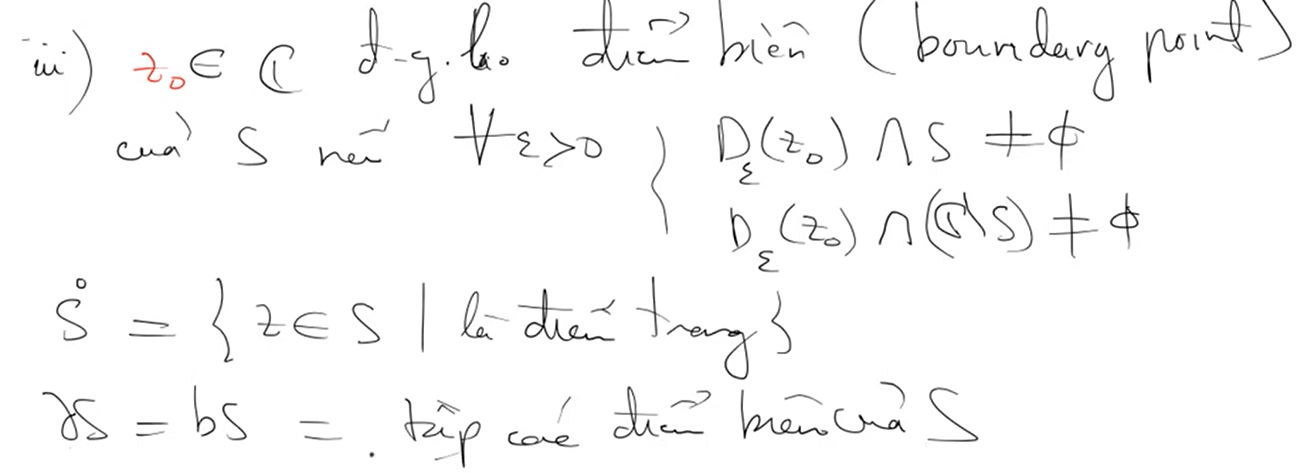 iii) z₀ ∈ ℂ đ-g.là. điểm biên (boundary point)
của S nếu ∀ε>0 { D_ε(z₀) ∩ S ≠ ϕ
D_ε(z₀) ∩ (ℂ\S) ≠ ϕ
S̊ = { z ∈ S | là điểm trong}
∂S = bS = . tập các điểm biên của S